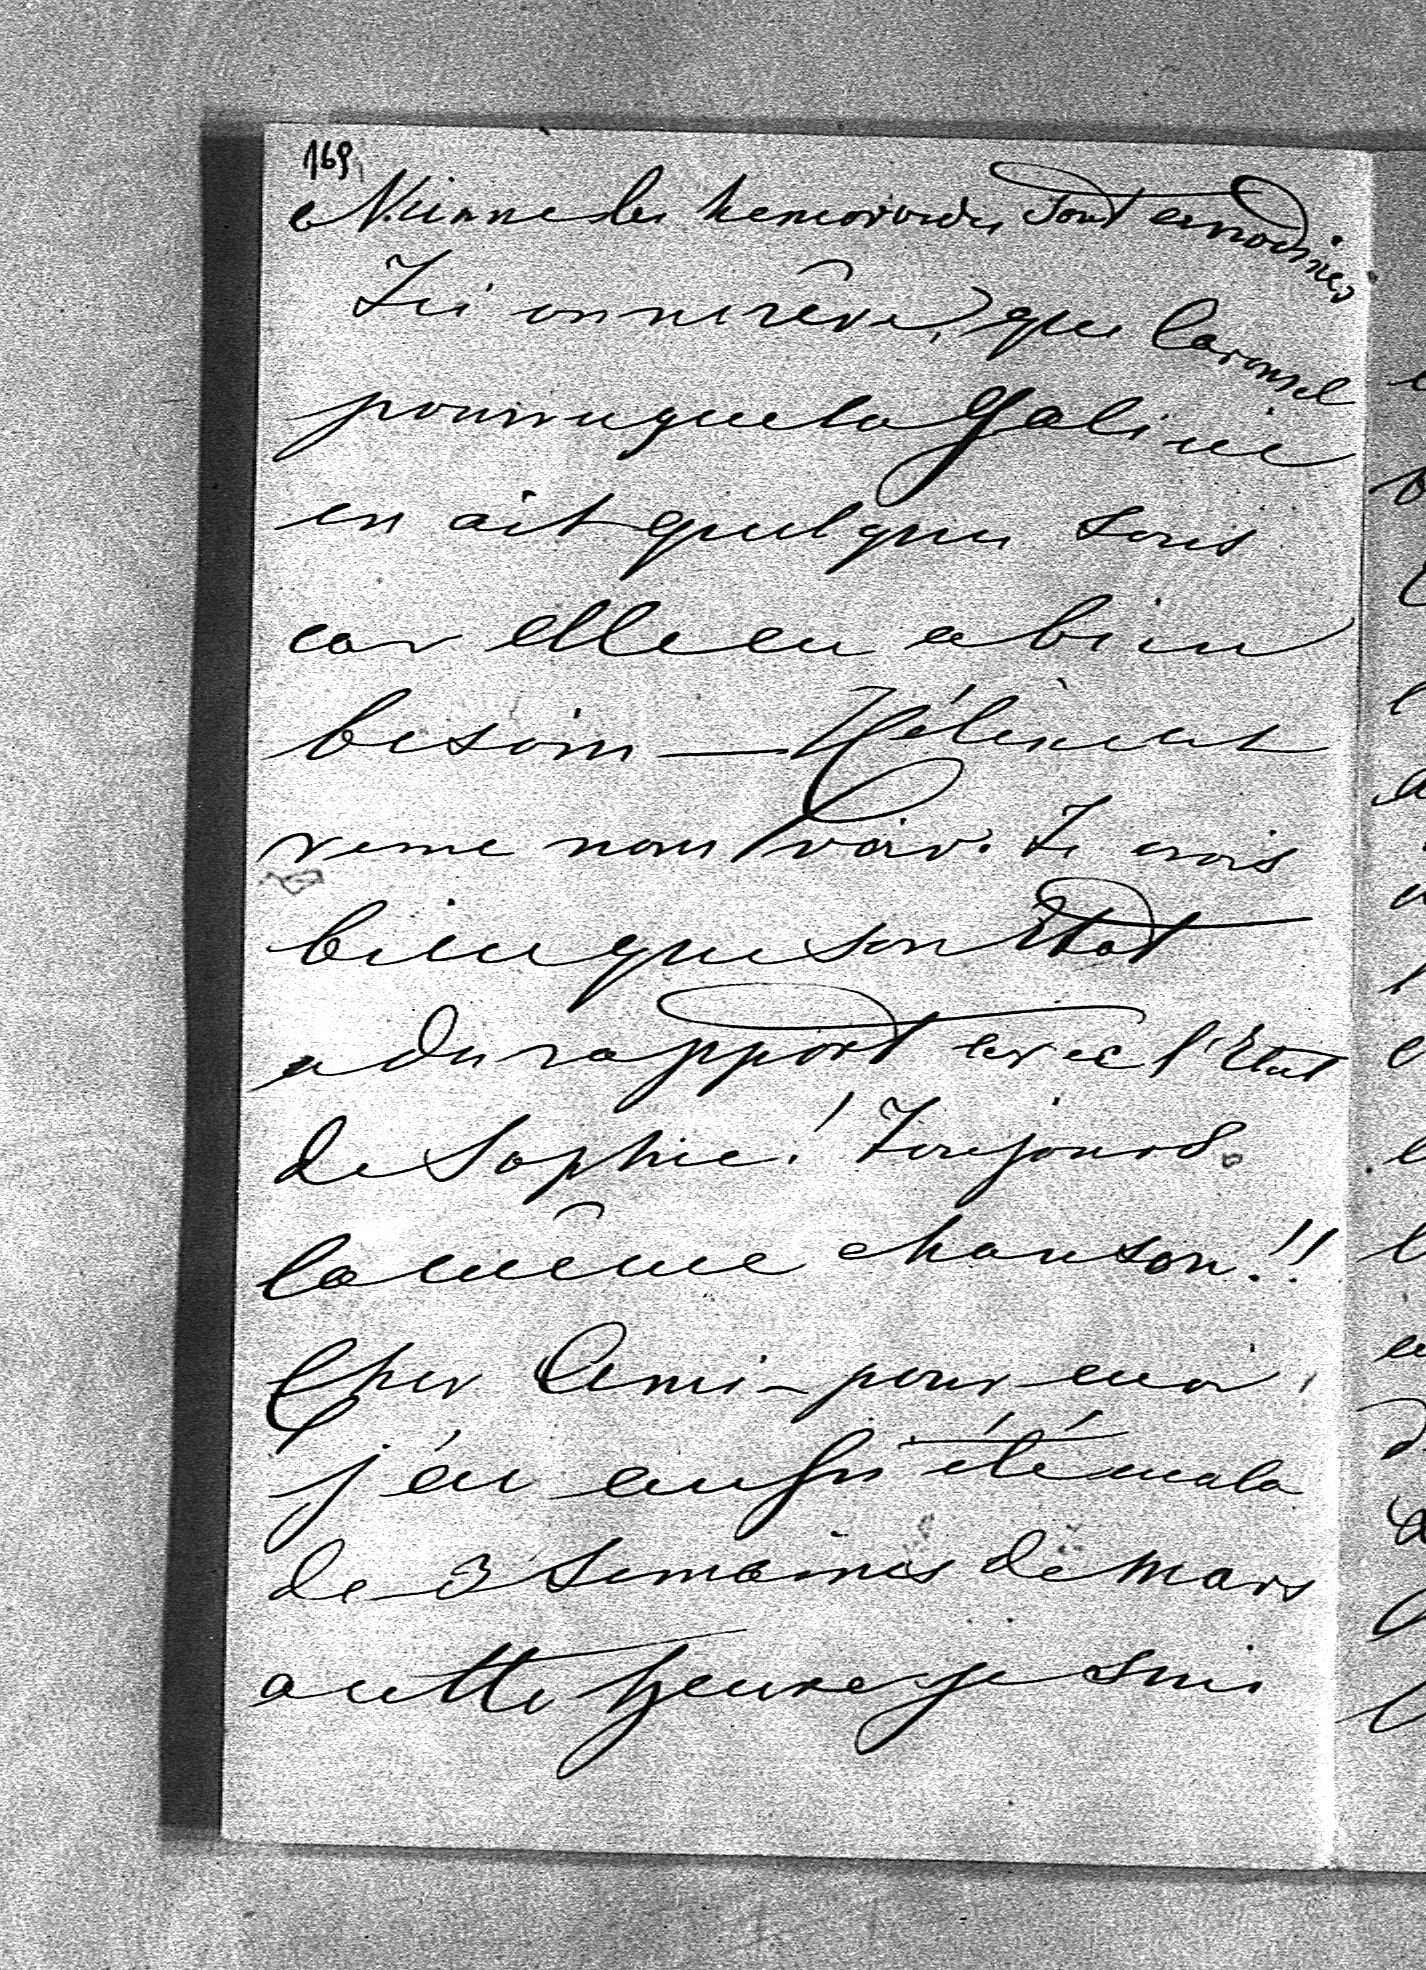 169
a Vienne les hemoroides sont anodines
Ici on ne rêve, que Carousel
pourvu que la Galicie
en ait quelques sous
car elle en a bien
besoin — Hélène est
venue nous voir. Je crois
bien que son Etat
a du rapport avec l'Etat
de Sophie! Toujours
la même chanson!!
Cher Ami – pour moi
j'ai aussi été mala
de 3 semaines de Mars
a cette heure je suis